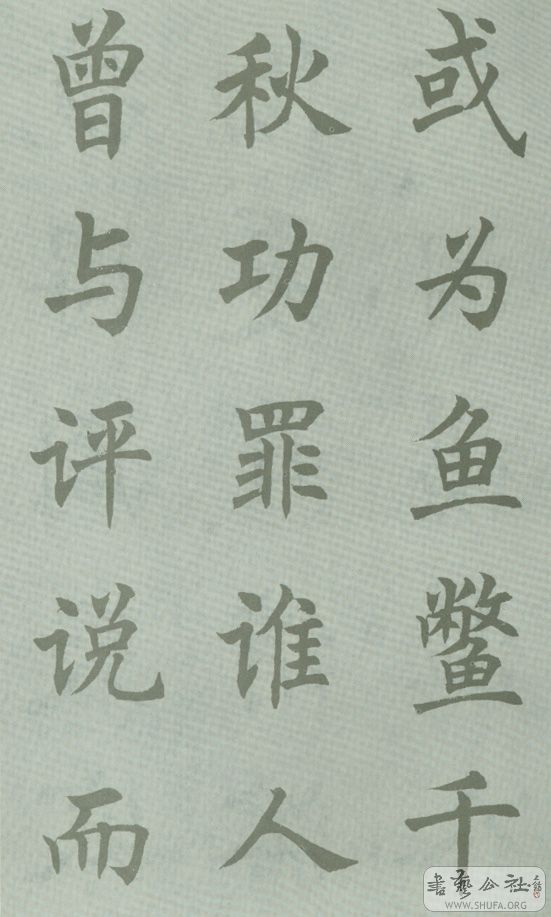 或为鱼鳖千
秋功罪谁人
曾与评说而
書藝公社
WWW.SHUFA.ORG